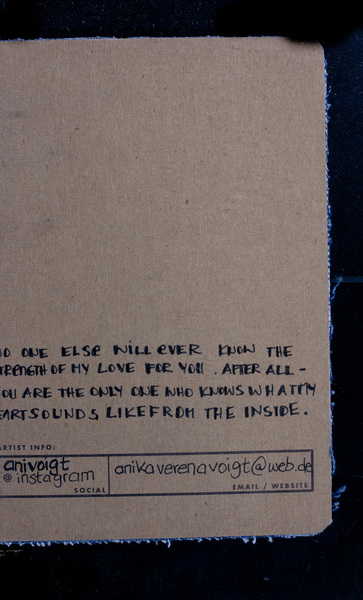 NO ONE ELSE WILL EVER KNOW THE
STRENGTH OF MY LOVE FOR YOU. AFTER ALL -
YOU ARE THE ONLY ONE WHO KNOWS WHAT MY
HEART SOUNDS LIKE FROM THE INSIDE.
ARTIST INFO:
anivoigt
@ instagram
SOCIAL
anikaverenavoigt@web.de
EMAIL / WEBSITE